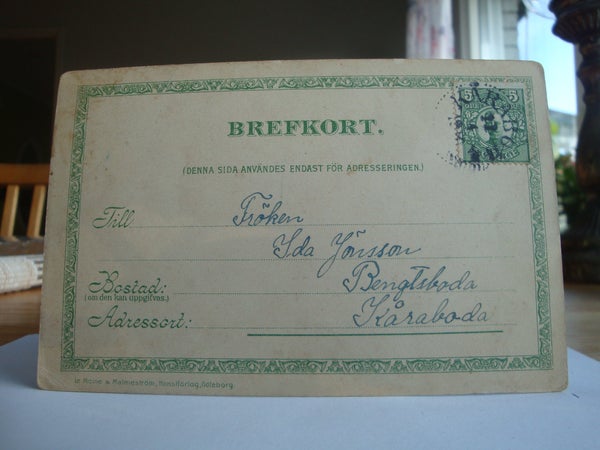 BREFKORT.
(DENNA SIDA ANVÄNDES ENDAST FÖR ADRESSERINGEN.)
5 5
Till Fröken
Ida Jönsson
Bostad: Bengtsboda
(om den kan uppgifvas.)
Adressort: Kåraboda
Le Moine & Malmeström, Konstförlag, Göteborg.